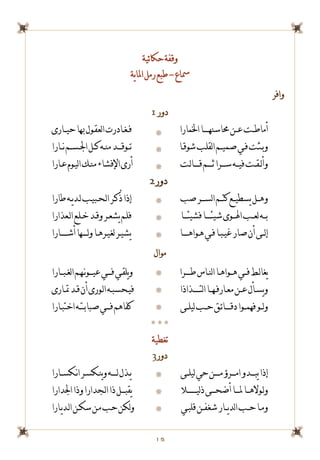 وقفة حكائية
سماع - طبع رمل الماية
وافر
دور 1
أماطت عن محاسنها الخمارا * فغادرت العقول بها حيارى
وبثت في صميم القلب شوقا * توقد منه كل الجسم نارا
وألقت فيه سرا ثم قالت * أرى الإفشاء منك اليوم عارا
دور 2
وهل يسطيع كتم السر صب * إذا ذكر الحبيب لديه طارا
به لعب الهوى شيئا فشيئا * فلم يشعر وقد خلع العذارا
إلى أن صار غيبا في هواها * يشير لغيرها ولها أشارا
موال
يغالط في هواها الناس طرا * ويلقي في عيونهم الغبارا
ويسأل عن معارفها التذاذا * فيحسبه الورى أن قد تمارى
ولو فهموا دقائق حب ليلى * كفاهم في صبابته اختبارا
* * *
تغطية
دور 3
إذا يبدو امرؤ من حي ليلى * يذل له وينكسر انكسارا
ولولاها لما أضحى ذليلا * يقبل ذا الجدارا وذا الجدارا
وما حب الديار شغفن قلبي * ولكن حب من سكن الديارا